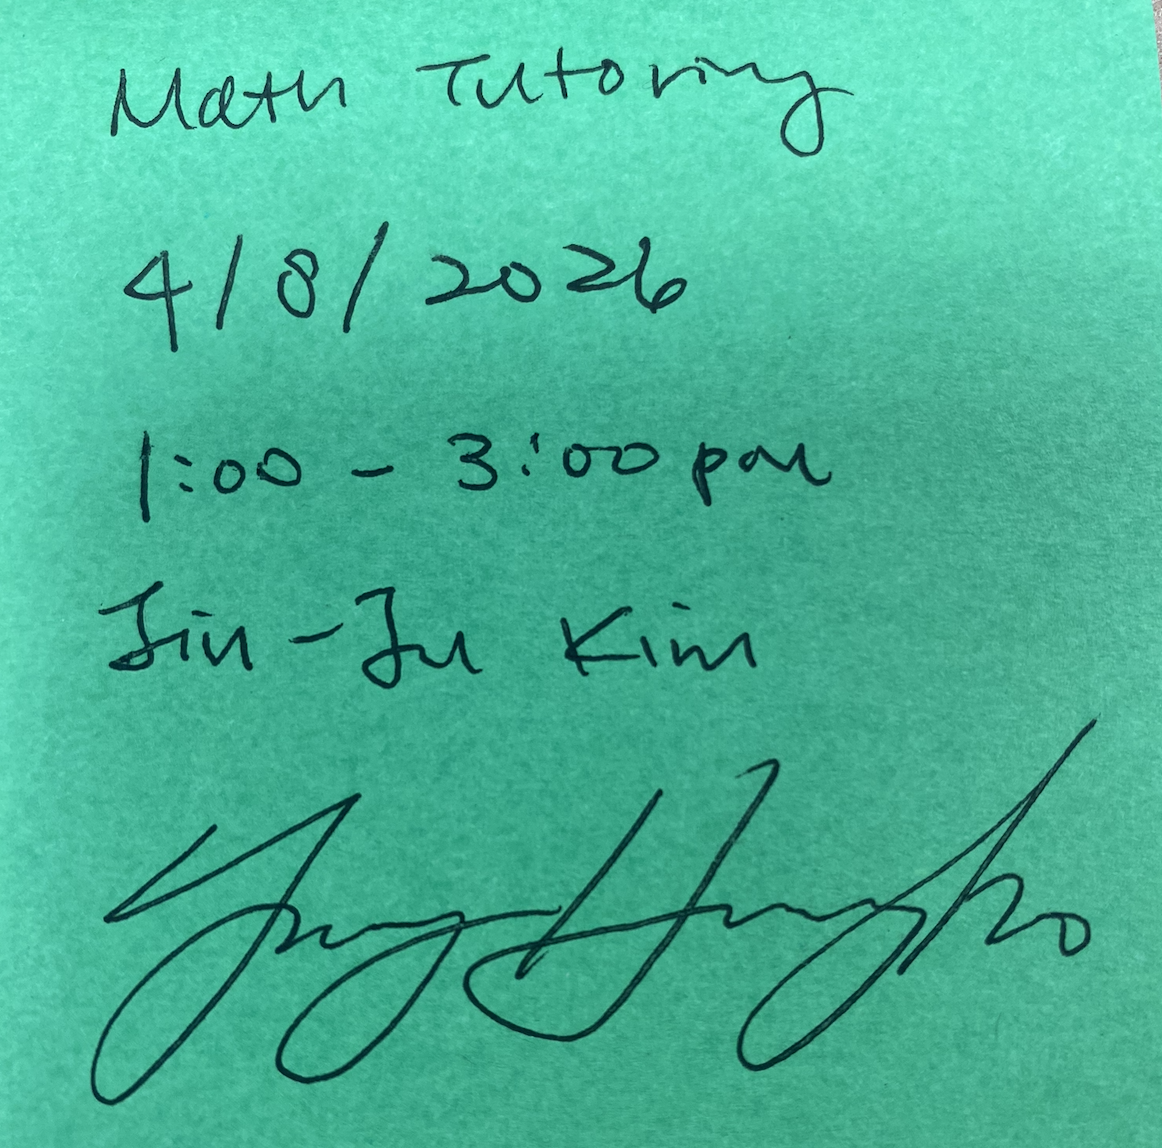 Math Tutoring
4/8/2026
1:00 - 3:00 pm
Jin-Ju Kim